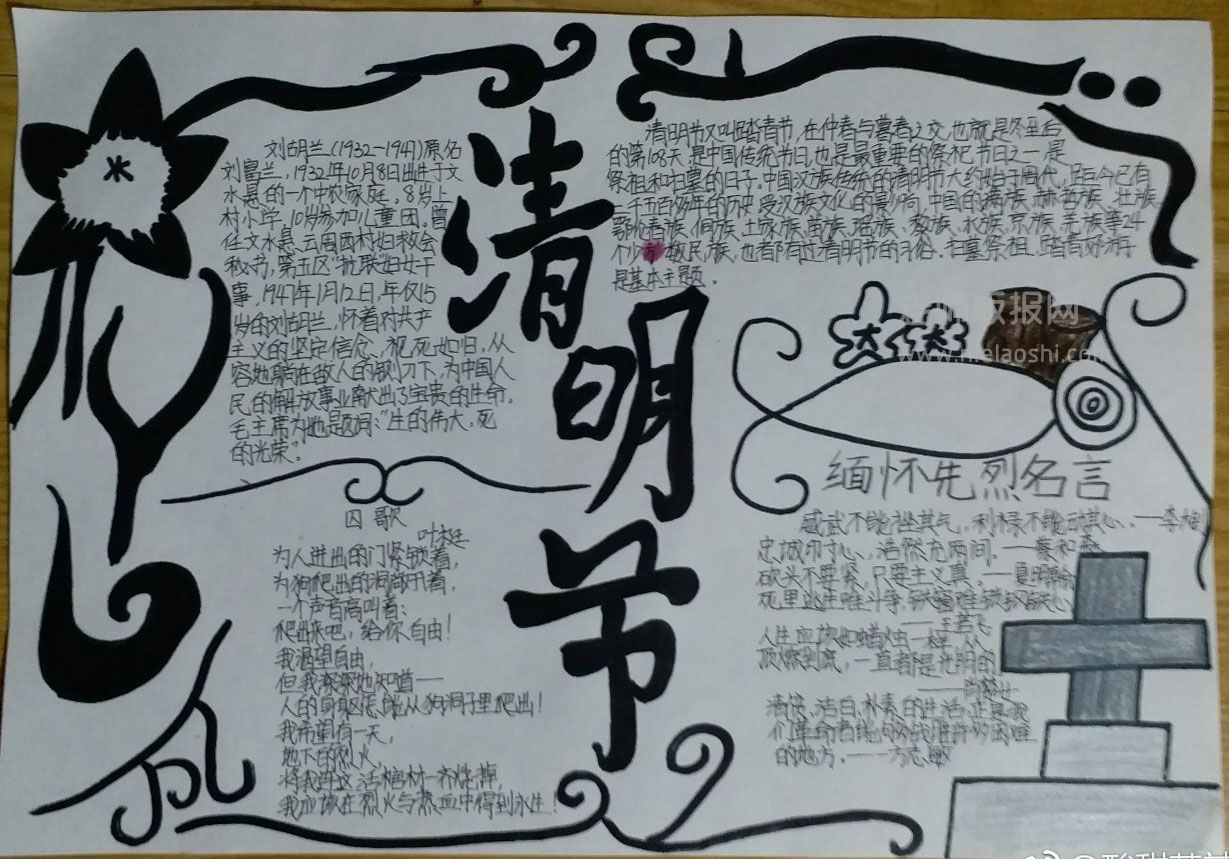 清明节
刘胡兰(1932-1947)原名
刘富兰,1932年10月8日出生于文
水县的一个中农家庭。8岁上
村小学,10岁参加儿童团。曾
任文水县云周西村妇救会
秘书,第五区"抗联"妇女干
事,1947年1月12日,年仅15
岁的刘胡兰,怀着对共产
主义的坚定信念,视死如归,从
容地躺在敌人的铡刀下,为中国人
民的解放事业献出了宝贵的生命。
毛主席为她题词:"生的伟大,死
的光荣"。
清明节又叫踏青节,在仲春与暮春之交,也就是冬至后
的第108天,是中国传统节日,也是最重要的祭祀节日之一,是
祭祖和扫墓的日子。中国汉族传统的清明节大约始于周代,距今已有
二千五百多年的历史。受汉族文化的影响,中国的满族、赫哲族、壮族、
鄂伦春族、侗族、土家族、苗族、瑶族、黎族、水族、京族、羌族等24
个少数民族,也都有过清明节的习俗。扫墓祭祖、踏青郊游
是基本主题。
囚歌
叶挺
为人进出的门紧锁着,
为狗爬出的洞敞开着,
一个声音高叫着:
爬出来吧,给你自由!
我渴望自由,
但我深深地知道——
人的身躯怎能从狗洞子里爬出!
我希望有一天,
地下的烈火,
将我连这活棺材一齐烧掉,
我应该在烈火与热血中得到永生!
缅怀先烈名言
威武不能挫其气,利禄不能动其心。——李大钊
忠诚印寸心,浩然充两间。——蔡和森
砍头不要紧,只要主义真。——夏明翰
死里逃生唯斗争,铁窗难锁钢铁心
——王若飞
人生应该如蜡烛一样,从
顶燃到底,一直都是光明的
——肖楚女
清贫、洁白、朴素的生活,正是我
们革命者能够战胜许多困难
的地方。——方志敏
www.helaoshi.com